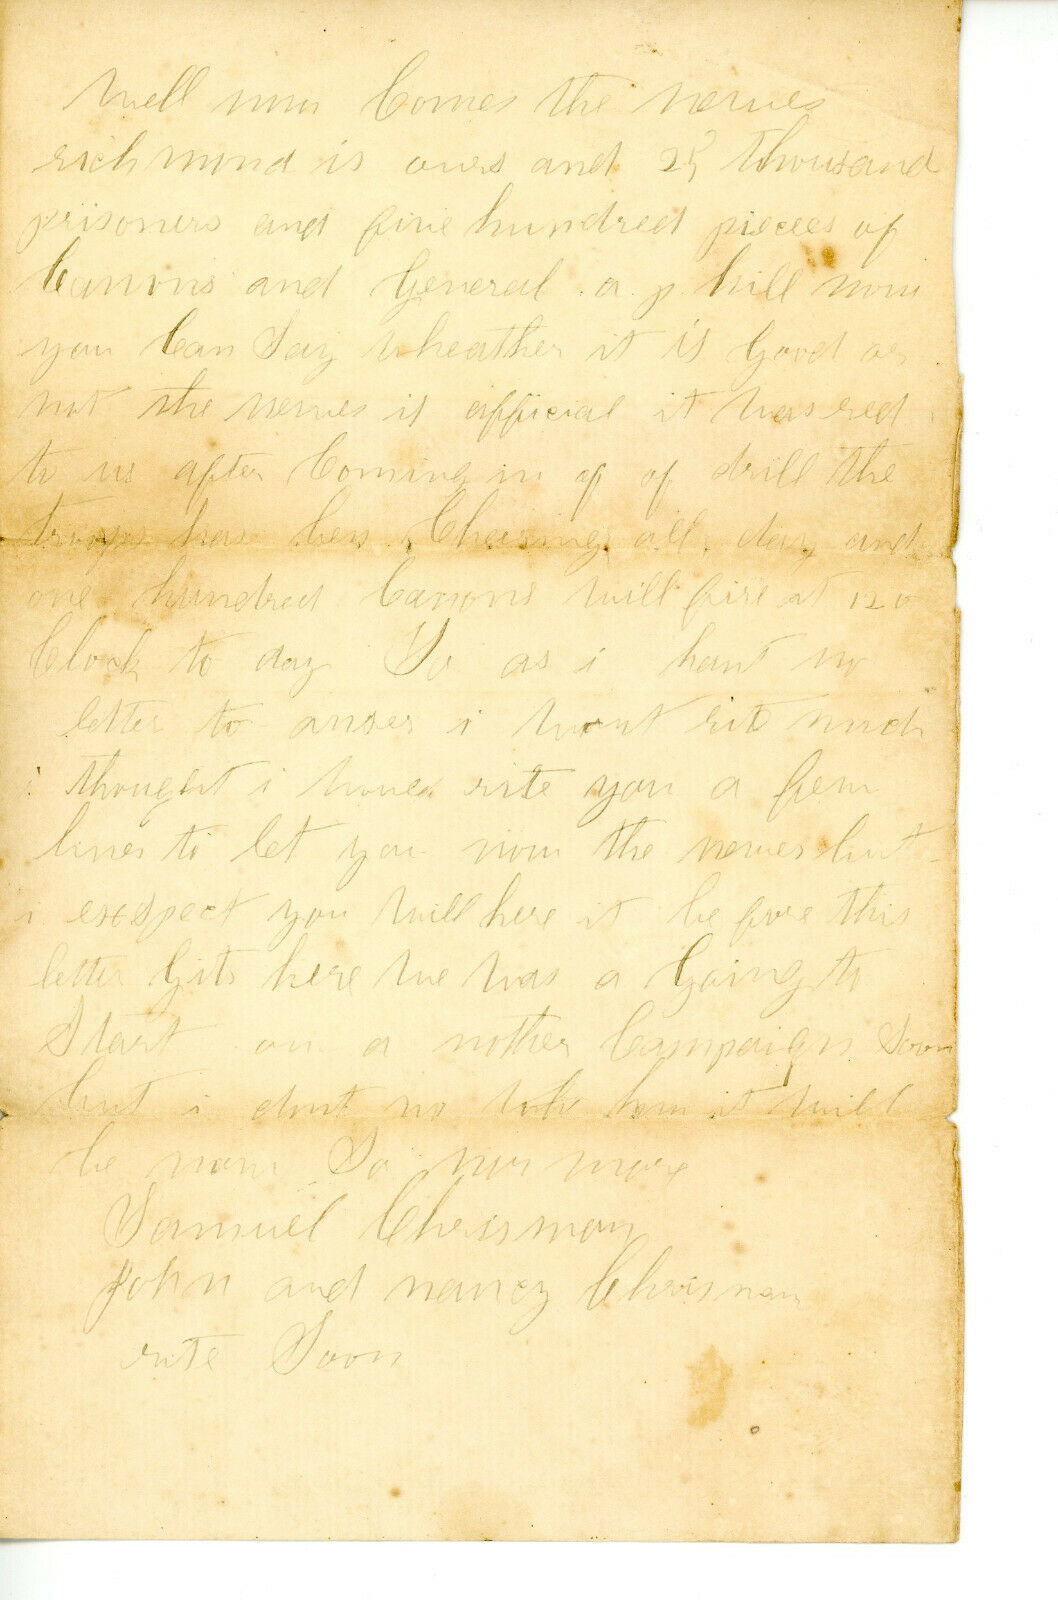 Well now Comes the newes
richmond is ours and 25 thousand
priisoners and five hundred pieces of
Canons and General a p hill now
you Can Say wheather it is Good or
not the newes is official it was red
to us after Coming in of of drill the
troops has ben Chearing all day and
one hundred Canons will fire at 12 o
Clock to day So as i hant no
letter to anser i wont rite much
i thought i woud rite you a few
lines to let you now the newes but
i exspect you will here it be fore this
letter Gits here we was a Going to
Start on a nother Campaign Soon
but i dont no how it will
be now So nor more
Samuel Cherisman
John and nancy Chrisman
rite Soon